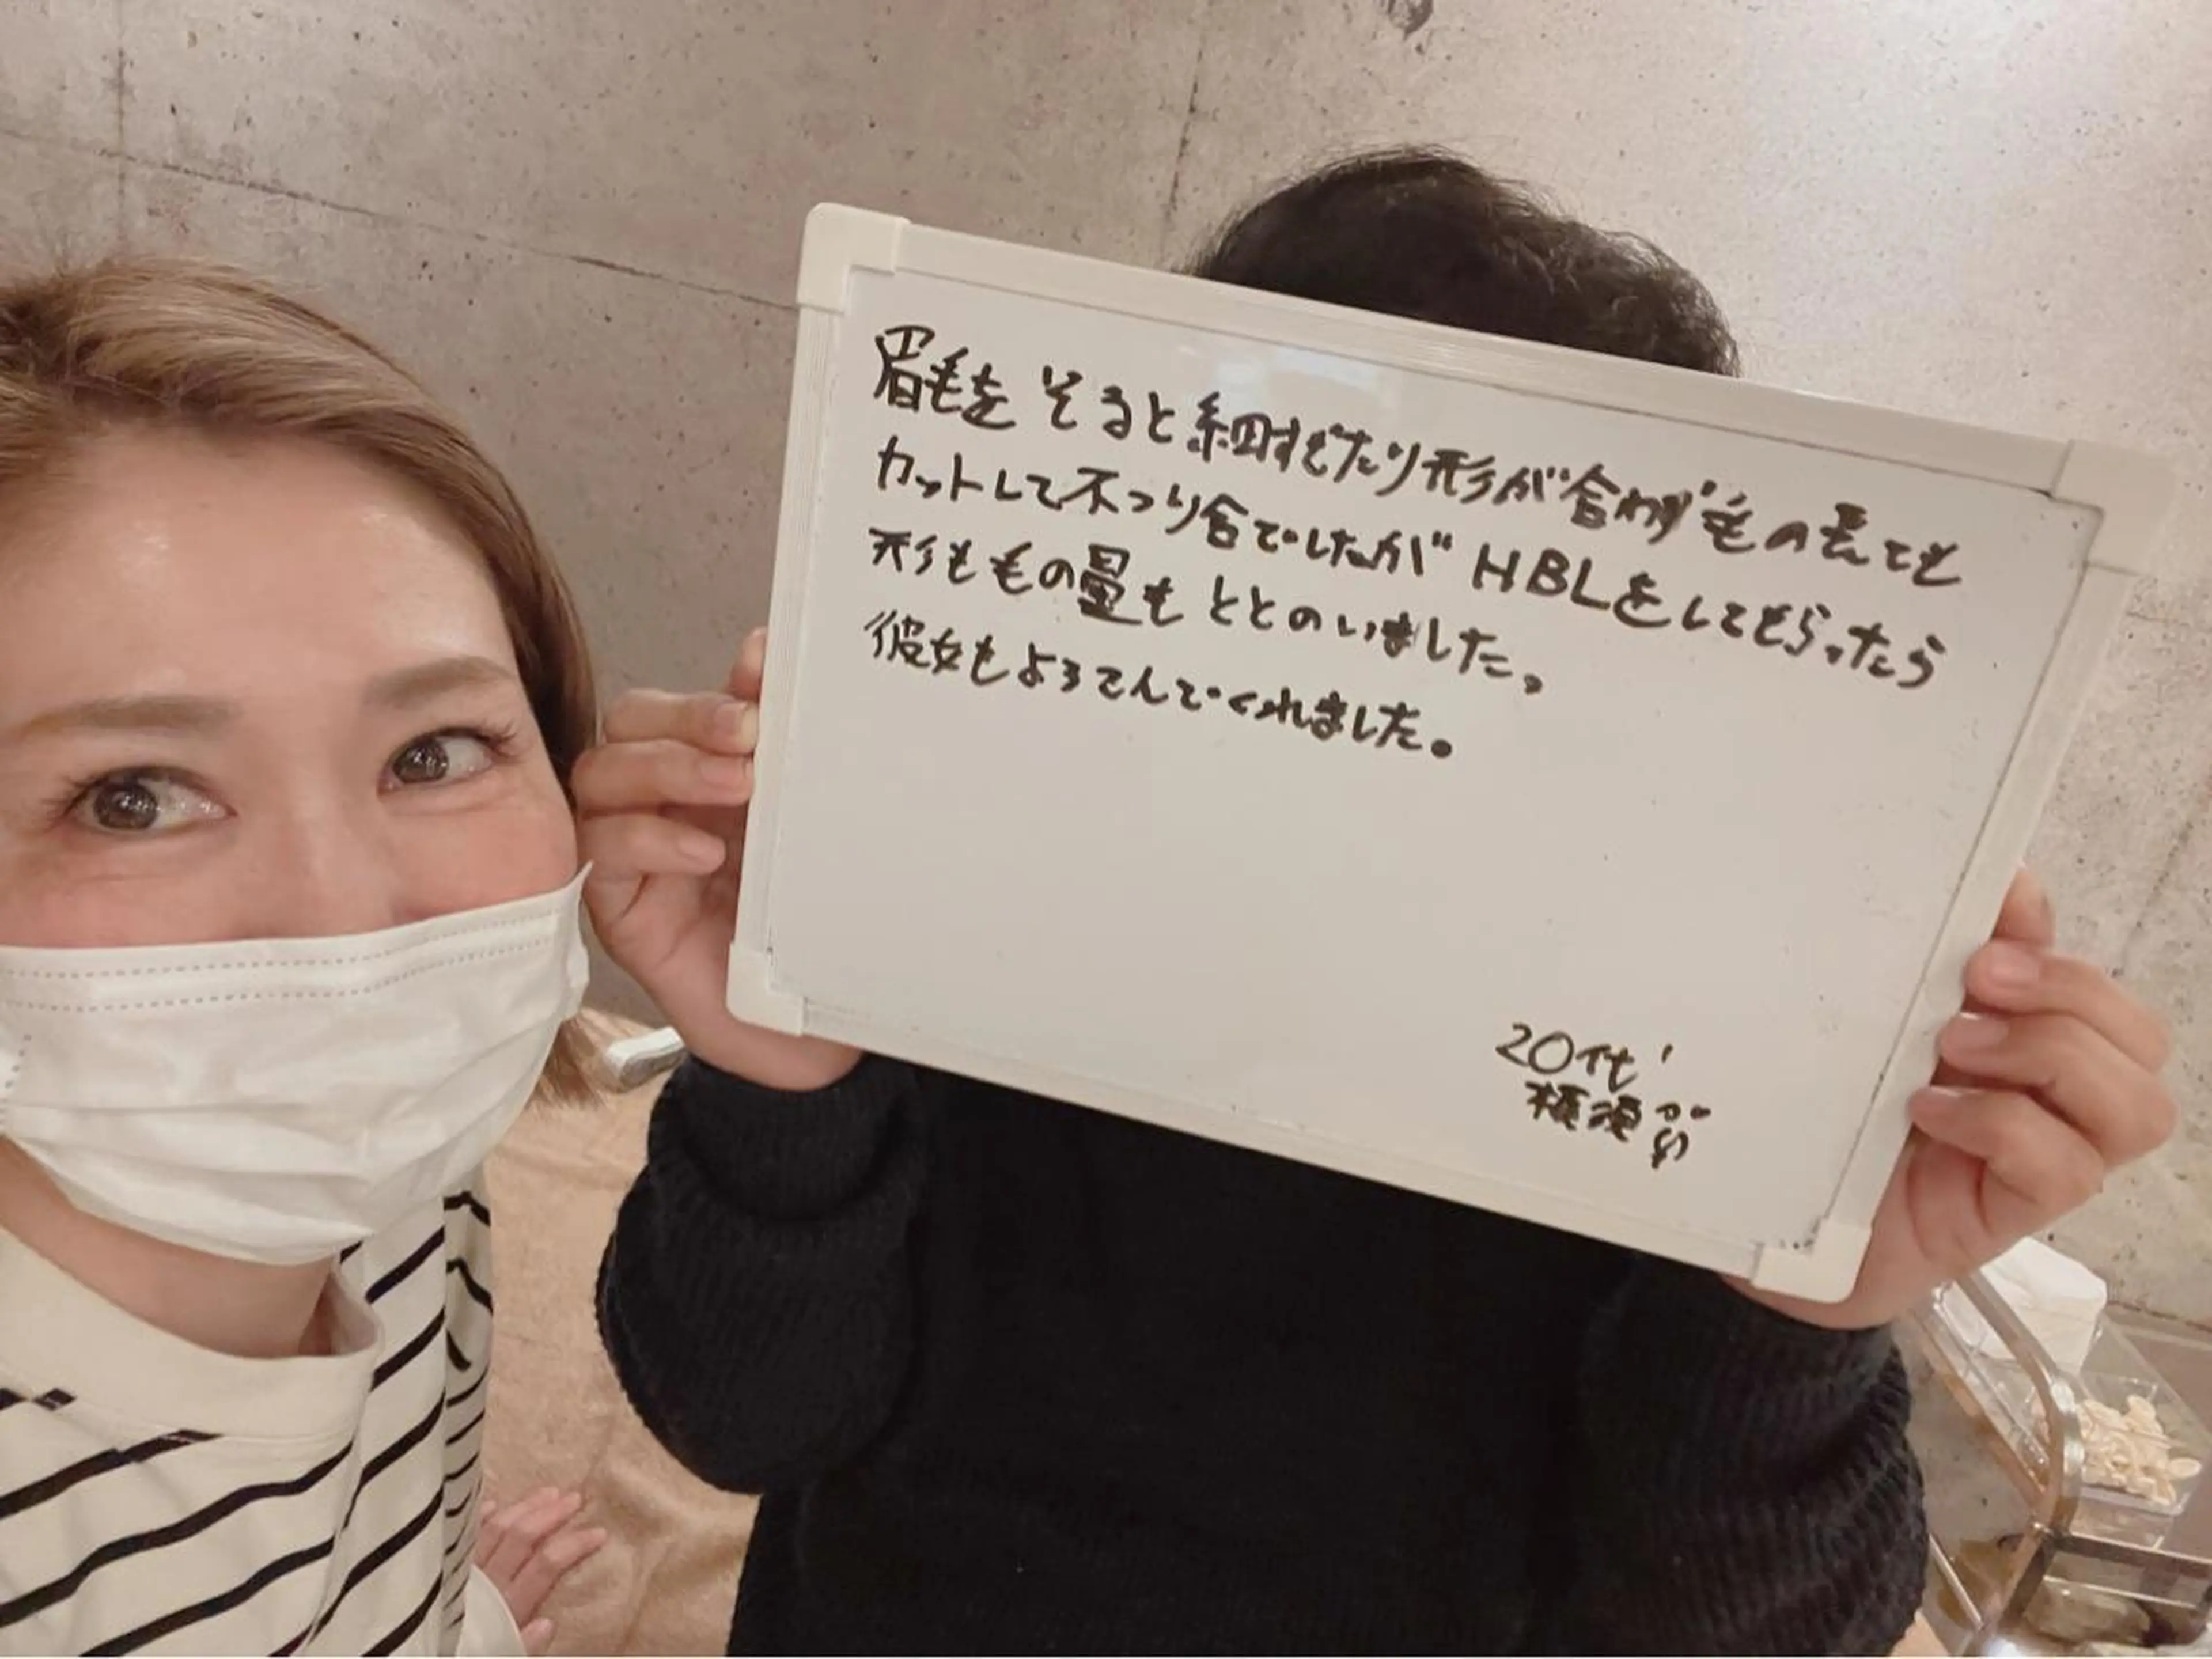 眉毛をそると細すぎたり形が合わず毛の長でも
カットして不つり合でしたが HBLをしてもらったら
形も毛の量もととのいました。
彼女もよろこんでくれました。
20代
横須賀